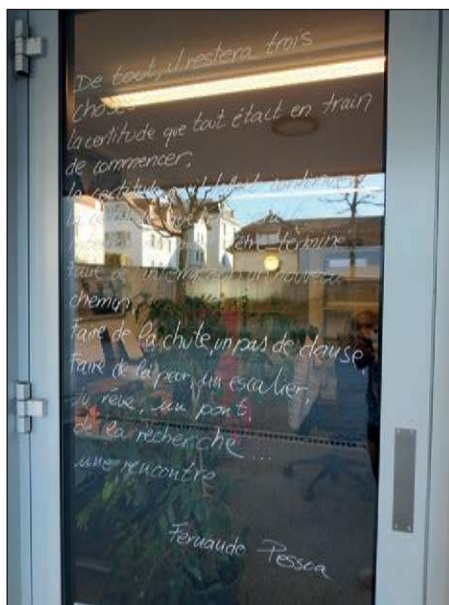 De tout, il restera trois
choses
la certitude que tout était en train
de commencer,
la certitude qu'il fallait continuer
la
termine
faire de l'un nouveau
chemin
faire de la chute, un pas de danse
Faire de la peur, un escalier,
du rêve, un pont,
de la recherche ...
une rencontre
Fernando Pessoa